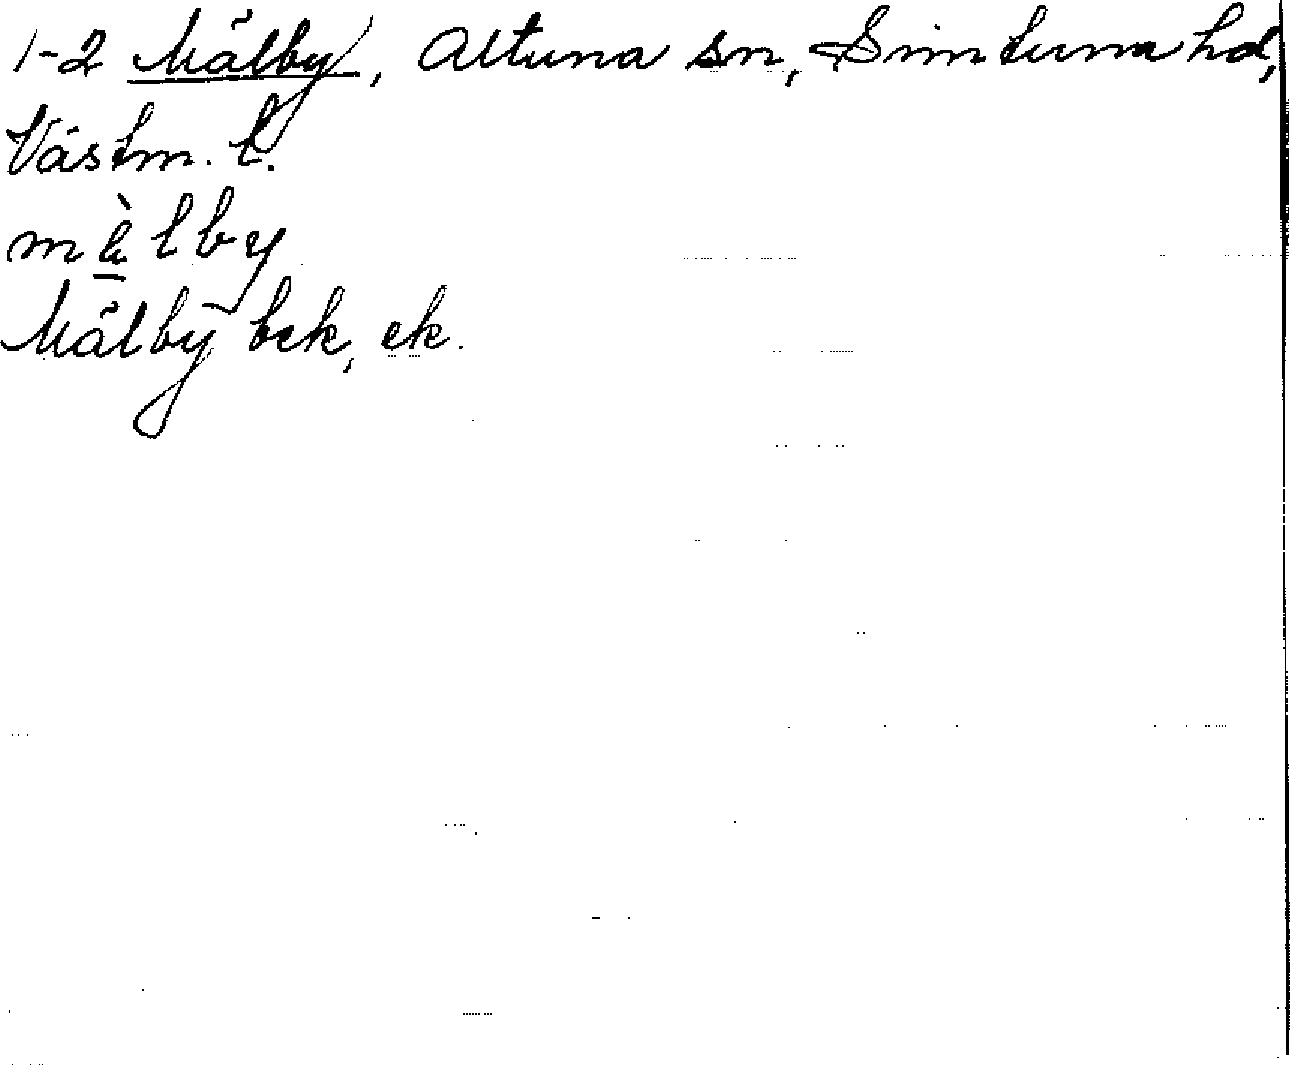 1-2 Mälby, Altuna sn, Simtuna hd,
Västm. l.
lby
Mälby bek, ek.